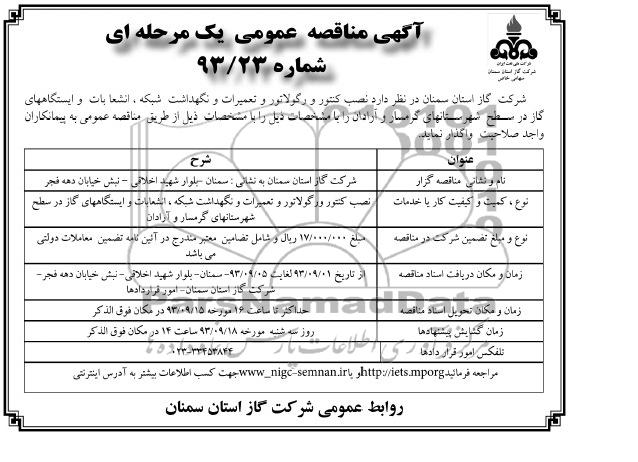 آگهی مناقصه عمومی یک مرحله ای
شماره ۹۳/۲۳
شرکت ملی گاز ایران
شرکت گاز استان سمنان
سهامی خاص
شرکت گاز استان سمنان در نظر دارد نصب کنتور و رگولاتور و تعمیرات و نگهداشت شبکه ، انشعا بات و ایستگاههای
گاز در سطح شهرستانهای گرمسار و آرادان را با مشخصات ذیل را با مشخصات ذیل از طریق مناقصه عمومی به پیمانکاران
واجد صلاحیت واگذار نماید.
عنوان شرح
نام و نشانی مناقصه گزار شرکت گاز استان سمنان به نشانی : سمنان -بلوار شهید اخلاقی - نبش خیابان دهه فجر
نوع ، کمیت و کیفیت کار یا خدمات نصب کنتور ورگولاتور و تعمیرات و نگهداشت شبکه ، انشعابات و ایستگاههای گاز در سطح
شهرستانهای گرمسار و آرادان
نوع و مبلغ تضمین شرکت در مناقصه مبلغ ۱۷/۰۰۰/۰۰۰ ریال و شامل تضامین معتبر مندرج در آئین نامه تضمین معاملات دولتی
می باشد
زمان و مکان دریافت اسناد مناقصه از تاریخ ۹۳/۰۹/۰۱ لغایت ۹۳/۰۹/۰۵- سمنان- بلوار شهید اخلاقی- نبش خیابان دهه فجر-
شرکت گاز استان سمنان- امور قراردادها
زمان و مکان تحویل اسناد مناقصه حداکثر تا ساعت ۱۶ مورخه ۹۳/۰۹/۱۵ در مکان فوق الذکر
زمان گشایش پیشنهادها روز سه شنبه مورخه ۹۳/۰۹/۱۸ ساعت ۱۴ در مکان فوق الذکر
تلفکس امور قرار دادها ۰۲۳-۳۳۴۵۳۸۴۴
مراجعه فرمائید http://iets.mporg و یا www_nigc-semnan.ir جهت کسب اطلاعات بیشتر به آدرس اینترنتی
روابط عمومی شرکت گاز استان سمنان
ParsNamadData